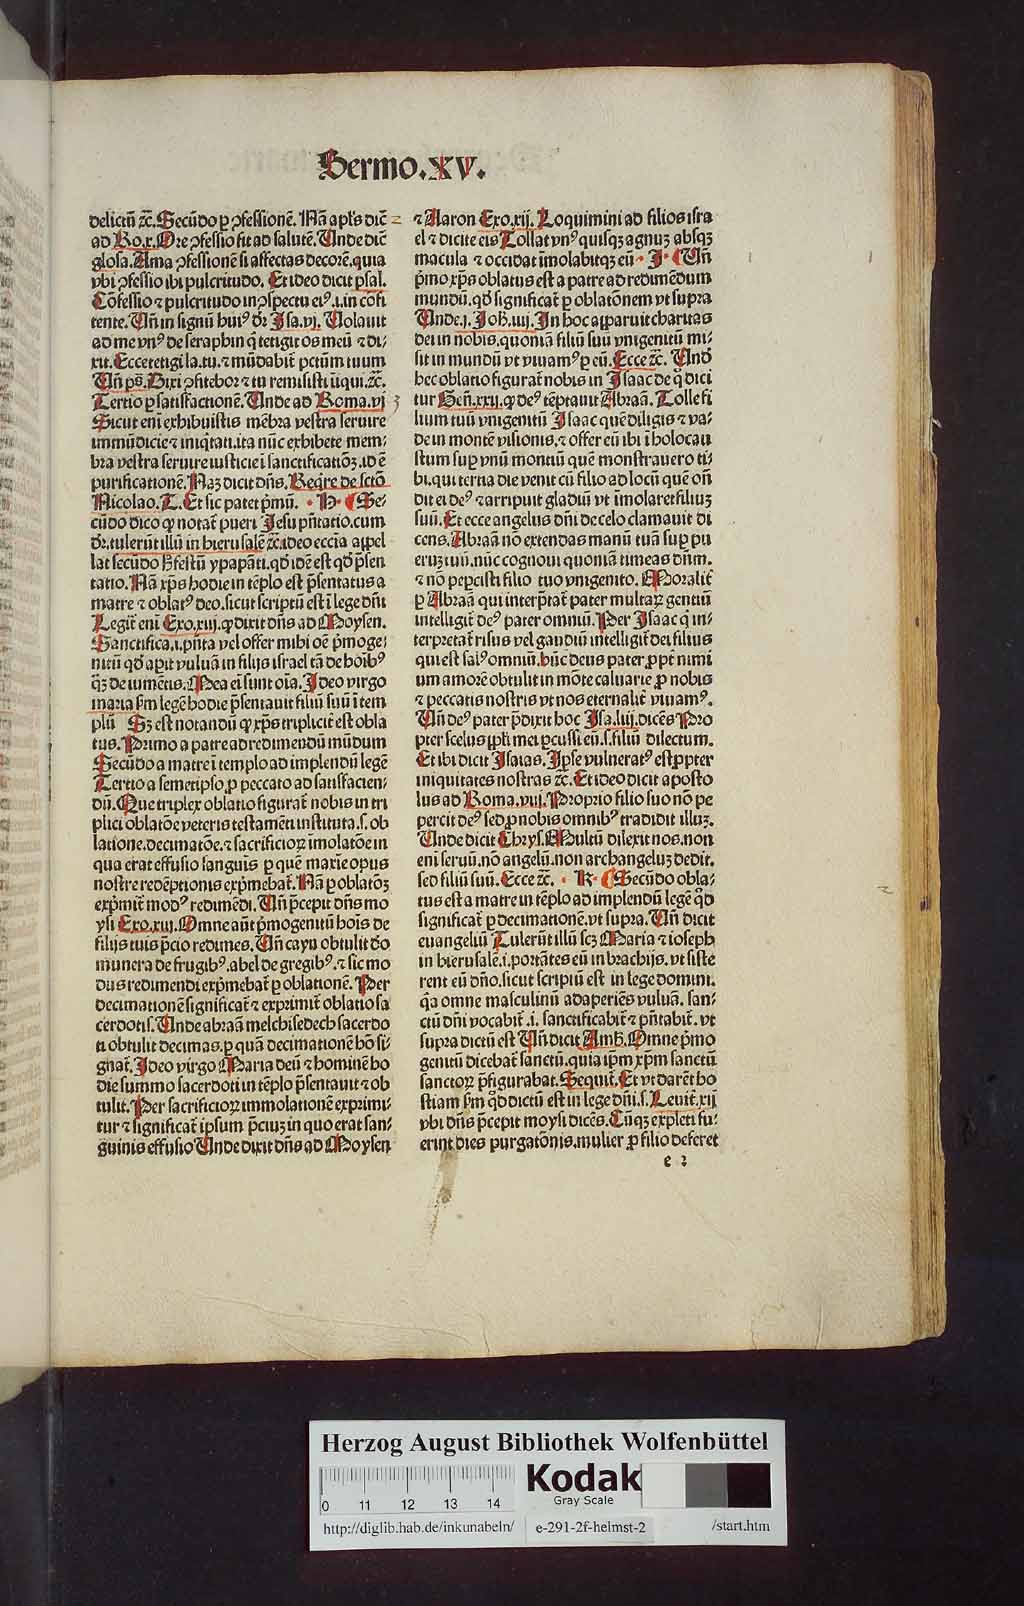 Sermo.XV.
delictū ⁊c̄. Secūdo ꝑ ꝯfessionē. Nā apl's dic̄
ad Ro.x. Ore ꝯfessio fit ad salutē. Unde dic̄
glosa. Ama ꝯfessionē si affectas decorē. quia
vbi ꝯfessio ibi pulcritudo. Et ideo dicit psal.
Cōfessio ⁊ pulcritudo in ꝯspectu eiꝰ .i. in cōfi
tente. Uñ in signū huiꝰ dr̄ Isa.vj. Uolauit
ad me vnꝰ de seraphin q̄ tetigit os meū ⁊ di-
xit. Ecce tetigi la. tu. ⁊ mūdabit̄ pctm̄ tuum
Uñ ps̄. Dixi ꝯfitebor ⁊ tu remisisti
Tertio ꝑ satisfactionē. Unde ad Roma.vj
Sicut eni exhibuistis mēbra vestra seruire
immūdicie ⁊ iniq̇tati. ita nūc exhibete mem-
bra vestra seruire iusticie ī sanctificatiōꝫ .id ē
purificationē. Naꝫ dicit dn̄s. Reqre de sctō
Nicolao. T. Et sic patet p̄mū. · H · Se-
cūdo dico ꝙ notat̄ pueri Jesu pn̄tatio. cum
dr̄. tulerūt illū in hierusalē ⁊c̄. ideo ecc̄ia appel
lat secūdo h̄ festū ypapāti. qd̓ idē est qd̓ p̄sen
tatio. Nā xp̄s hodie in tēplo est p̄sentatus a
matre ⁊ oblatꝰ deo. sicut scriptū est ī lege dn̄i
Legit̄ eni Exo.xiij. ꝙ dixit dn̄s ad Moysen.
Sanctifica .i. pn̄ta vel offer mihi oē p̄moge-
nitū qd̓ apit vuluā in filijs israel tā de hoībꝰ
q̄ꝫ de iumētis. Mea ei sunt oīa. Ideo virgo
maria ẜm legē hodie p̄sentauit filiū suū ī tem
plū Sꝫ est notandū ꝙ xp̄s triplicit̄ est obla
tus. Primo a patre ad redimendū mūdum
Secūdo a matre ī templo ad implendū legē
Tertio a semetipso ꝓ peccato ad satisfacien-
dū. Que triplex oblatio figurat̄ nobis in tri
plici oblatōe veteris testamēti instituta .s. ob
latione. decimatōe. ⁊ sacrificioꝝ īmolatōe in
qua erat effusio sanguīs ꝑ quē maxie opus
nostre redēptionis exp̄mebat̄. Nā ꝑ oblatōꝫ
exp̄mit̄ modꝰ redimēdi. Uñ p̄cepit dn̄s mo
ysi Exo.xiij. Omne aūt p̄mogenitū hoīs de
filijs tuis p̄cio redimes. Uñ cayn obtulit dō
munera de frugibꝰ. abel de gregibꝰ. ⁊ sic mo
dus redimendi exp̄mebat̄ ꝑ oblationē. Per
decimationē significat̄ ⁊ exprimit̄ oblatio sa
cerdotis. Unde abraā melchisedech sacerdo
ti obtulit decimas. ꝑ quā decimationē hō si-
gnat̄. Ideo virgo Maria deū ⁊ hominē ho
die summo sacerdoti in tēplo p̄sentauit ⁊ ob
tulit. Per sacrificioꝝ immolationē exprimi-
tur ⁊ significat̄ ipsum p̄ciuꝫ in quo erat san-
guinis effusio Unde dixit dn̄s ad Moysen
⁊ Aaron Exo.xij. Loquimini ad filios isra
el ⁊ dicite eis Tollat vnꝰ quisqꝫ agnuꝫ absqꝫ
macula ⁊ occidat īmolabitqꝫ eū · J · Uñ
p̄mo xp̄s oblatus est a patre ad redimēdum
mundū. qd̓ significat̄ ꝑ oblatōnem vt supra
Unde .j. Joh̄.iiij. In hoc apparuit charitas
dei in nobis. quoniā filiū suū vnigenitū mi-
sit in mundū vt viuamꝰ ꝑ eū. Ecce ⁊c̄. Und̓
hec oblatio figurat̄ nobis in Isaac de q̄ dici
tur Gen̄.xxij. ꝙ deꝰ tēptauit Abraā. Tolle fi
lium tuū vnigenitū Isaac quē diligis ⁊ va-
de in montē visionis. ⁊ offer eū ibi ī holocau
stum suꝑ vnū montiū quē monstrauero ti-
bi. qui tertia die venit cū filio ad locū quē on̄
dit ei deꝰ ⁊ arripuit gladiū vt īmolaret filiuꝫ
suū. Et ecce angelus dn̄i de celo clamauit di
cens. Abraā nō extendas manū tuā suꝑ pu
eruꝫ tuū. nūc cognoui quoniā timeas dn̄m.
⁊ nō peꝑcisti filio tuo vnigenito. Moralit̄
ꝑ Abraā qui interp̄tat̄ pater multaꝝ gentiū
intelligit̄ deꝰ pater omniū. Per Isaac q̇ in-
terpretat̄ risus vel gaudiū intelligit̄ dei filius
qui est salꝰ omniū. hūc deus pater ꝓpt̄ nimi
um amorē obtulit in mōte caluarie ꝓ nobis
⁊ peccatis nostris vt nos eternalit̄ viuamꝰ.
Uñ deꝰ pater p̄dixit hoc Isa.liij. dicēs Pro
pter scelus ppl̓i mei ꝑcussi eū .s. filiū dilectum.
Et ibi dicit Isaias. Ipse vulneratꝰ est ꝓpter
iniquitates nostras ⁊c̄. Et ideo dicit aposto
lus ad Roma.viij. Proprio filio suo nō pe
percit deꝰ sed ꝓ nobis omnibꝰ tradidit illuꝫ.
Unde dicit Chrys. Multū dilexit nos. non
eni seruū. nō angelū. non archangeluꝫ dedit.
sed filiū suū. Ecce ⁊c̄. · K · Secūdo obla-
tus est a matre in tēplo ad implendū legē q̄d̓
significat̄ ꝑ decimationē. vt supra. Uñ dicit
euangeliū Tulerūt illū scꝫ Maria ⁊ ioseph
in hierusalē .i. portātes eū in brachijs. vt siste
rent eū dn̄o. sicut scriptū est in lege domini.
q̄a omne masculinū adaperiēs vuluā. san-
ctū dn̄i vocabit̄ .i. sanctificabit̄ ⁊ pn̄tabit̄. vt
supra dictū est Uñ dicit Amb̄. Omne p̄mo
genitū dicebat̄ sanctū. quia ip̄m xp̄m sanctū
sanctoꝝ p̄figurabat. Sequit̄. Et vt darēt ho
stiam ẜm q̄d dictū est in lege dn̄i .s. Leuit̄.xij
vbi dn̄s p̄cepit moysi dicēs. Cūqꝫ expleti fu-
erint dies purgatōnis. mulier ꝓ filio deferet
e 2
Herzog August Bibliothek Wolfenbüttel
Kodak
Gray Scale
0 11 12 13 14
http://diglib.hab.de/inkunabeln/ e-291-2f-helmst-2 /start.htm